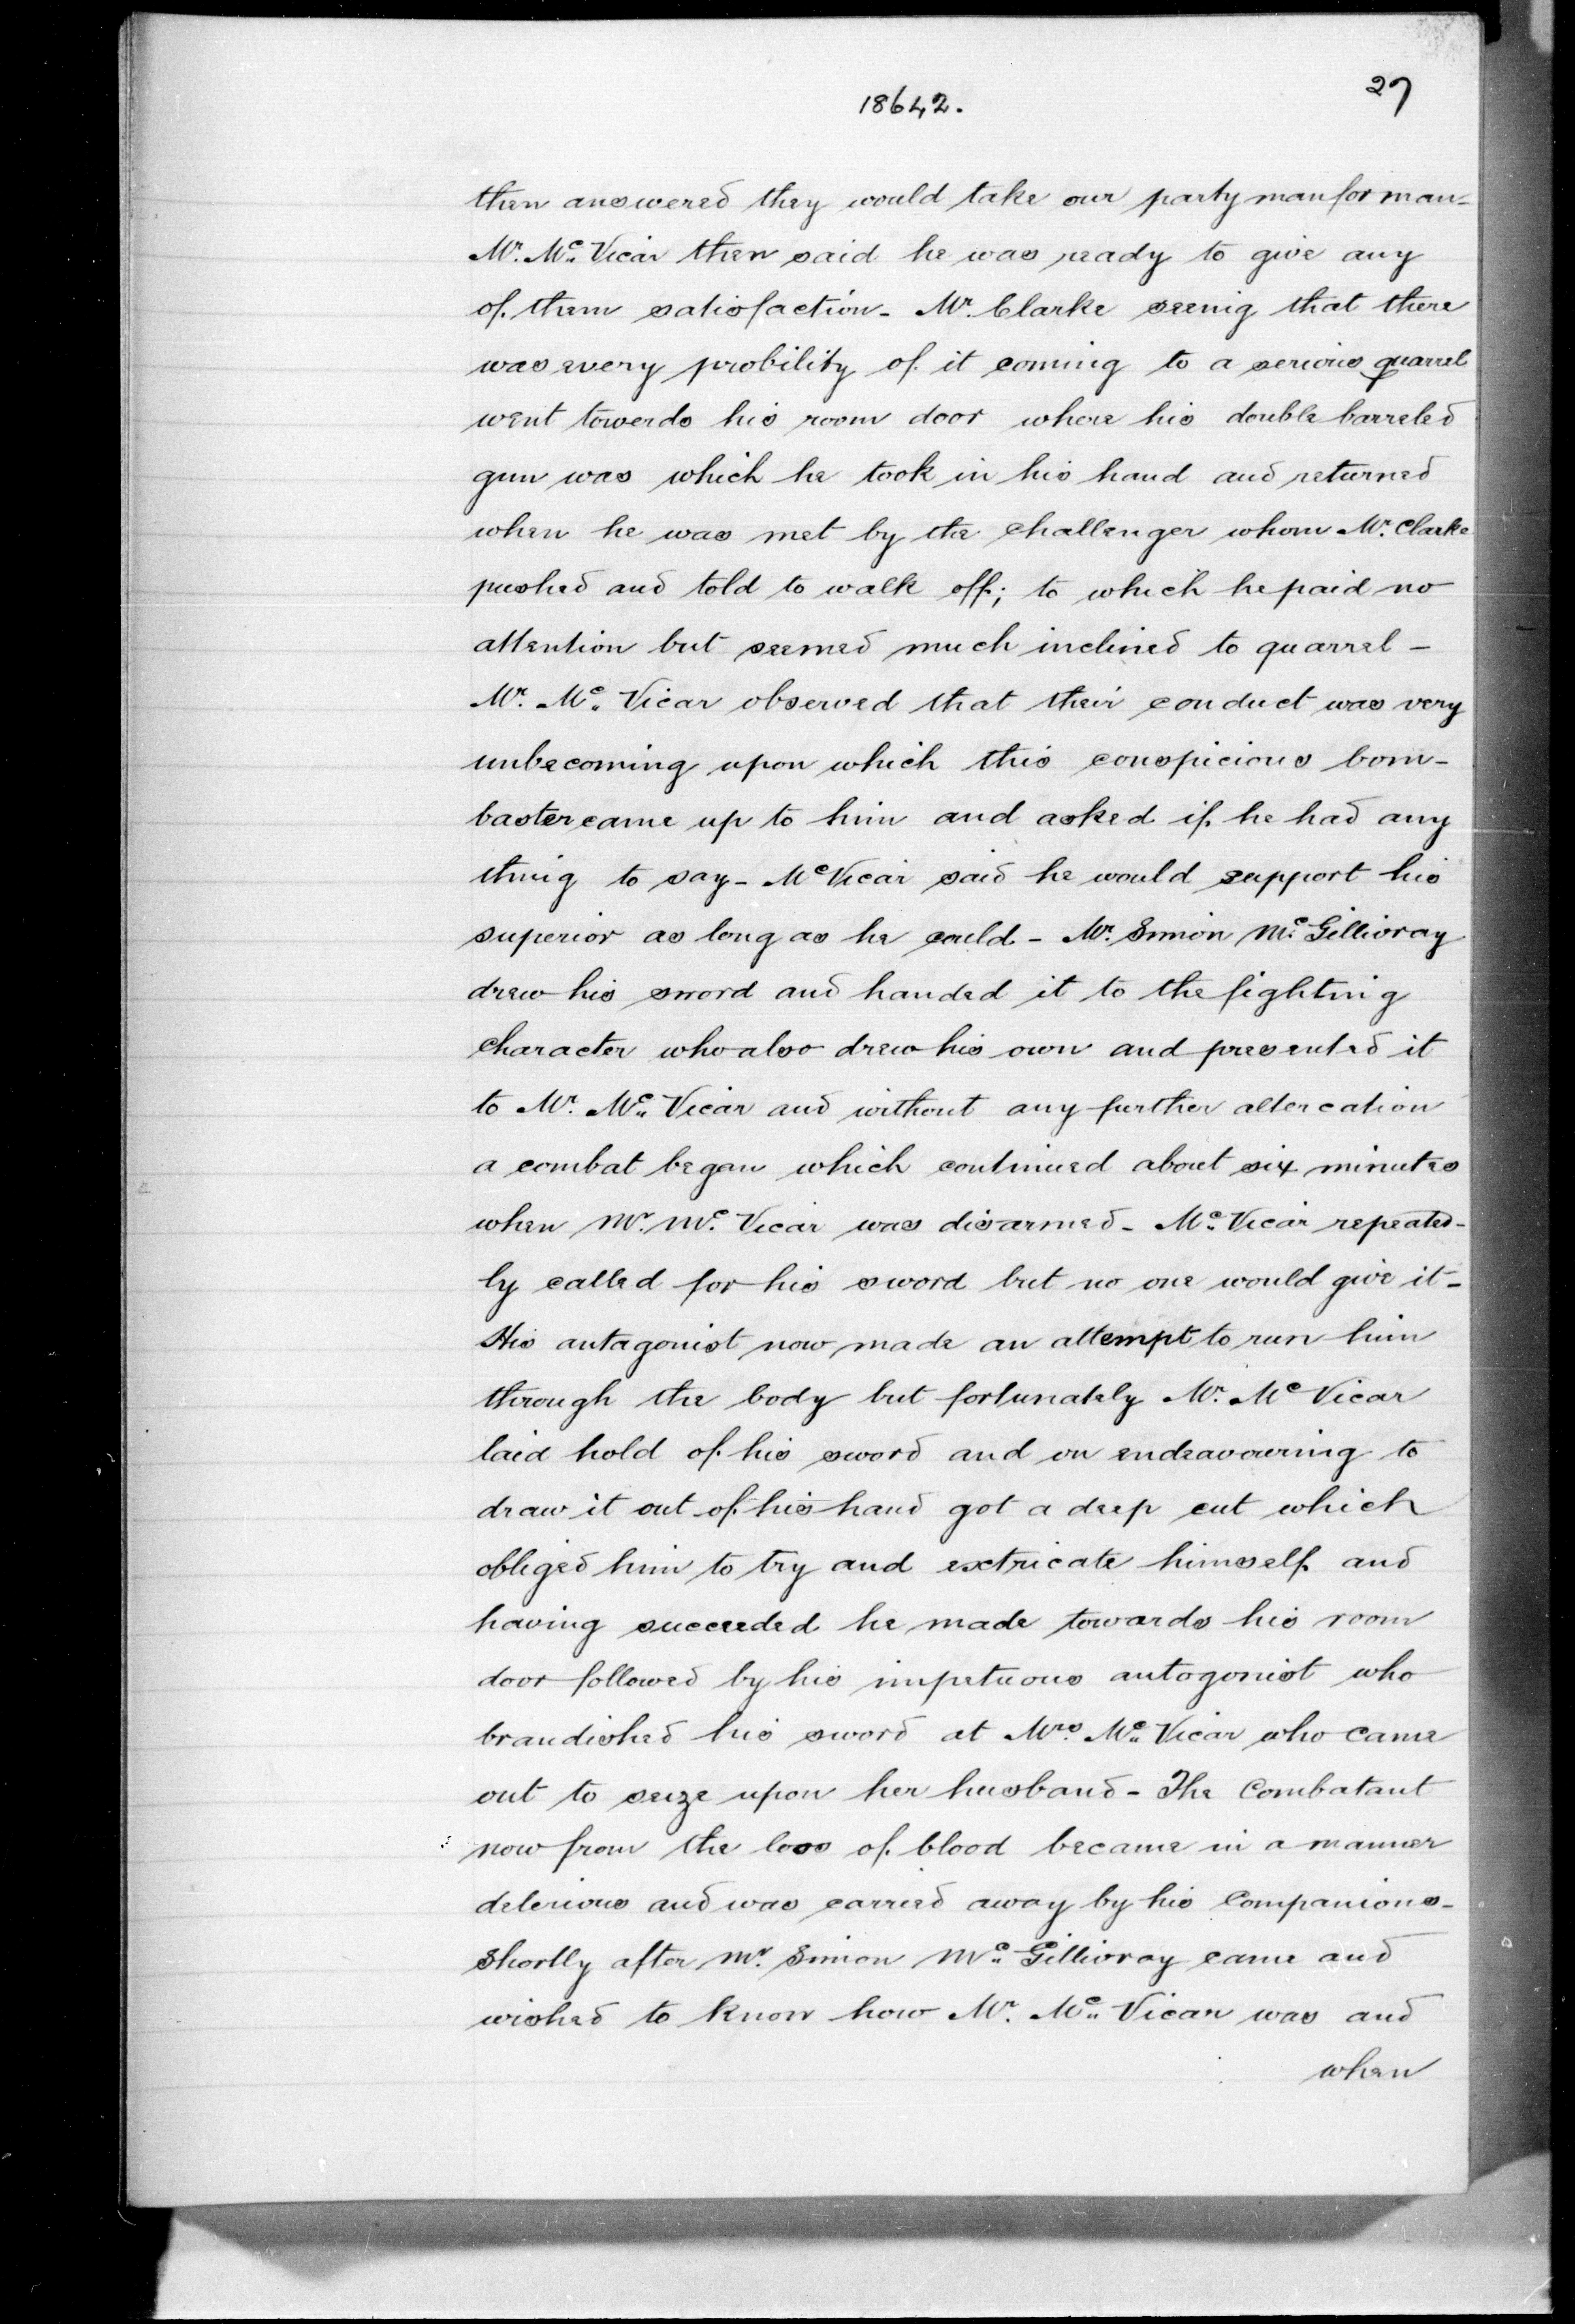 27
18642.
then answered they would take our party man for man-
Mr. Mc. Vicar then said he was ready to give any
of them satisfaction- Mr. Clarke seenig that there
was every probility of it coming to a serious quarrel
went towerds his room door where his double barreled
gun was which he took in his hand and returned
when he was met by the challenger whom Mr. Clarke
pushed and told to walk off; to which he paid no
attention but seemed much inclined to quarrel -
Mr. Mc. Vicar observed that their conduct was very
unbecoming upon which this conspicious bom-
baster came up to him and asked if he had any
thing to say- McVicar said he would support his
superior as long as he could- Mr. Simon Mc Gillivray
drew his sword and handed it to the fighting
character who also drew his own and presented it
to Mr. Mc. Vicar and without any further altercation
a combat began which continued about six minutes
when Mr. Mc. Vicar was disarmed- Mc. Vicar repeated-
ly called for his sword but no one would give it-
His antagonist now made an attempt to run him
through the body but fortunately Mr. Mc Vicar
laid hold of his sword and on endeavouring to
draw it out of his hand got a deep cut which
obliged him to try and exctricate himself and
having succeeded he made towards his room
door followed by his impetuous antogonist who
brandished his sword at Mrs. Mc. Vicar who came
out to seize upon her husband- The Combatant
now from the loss of blood became in a manner
delerious and was carried away by his Companions-
Shortly after Mr. Simon Mc. Gillivray came and
wished to know how Mr. Mc. Vicar was and
when